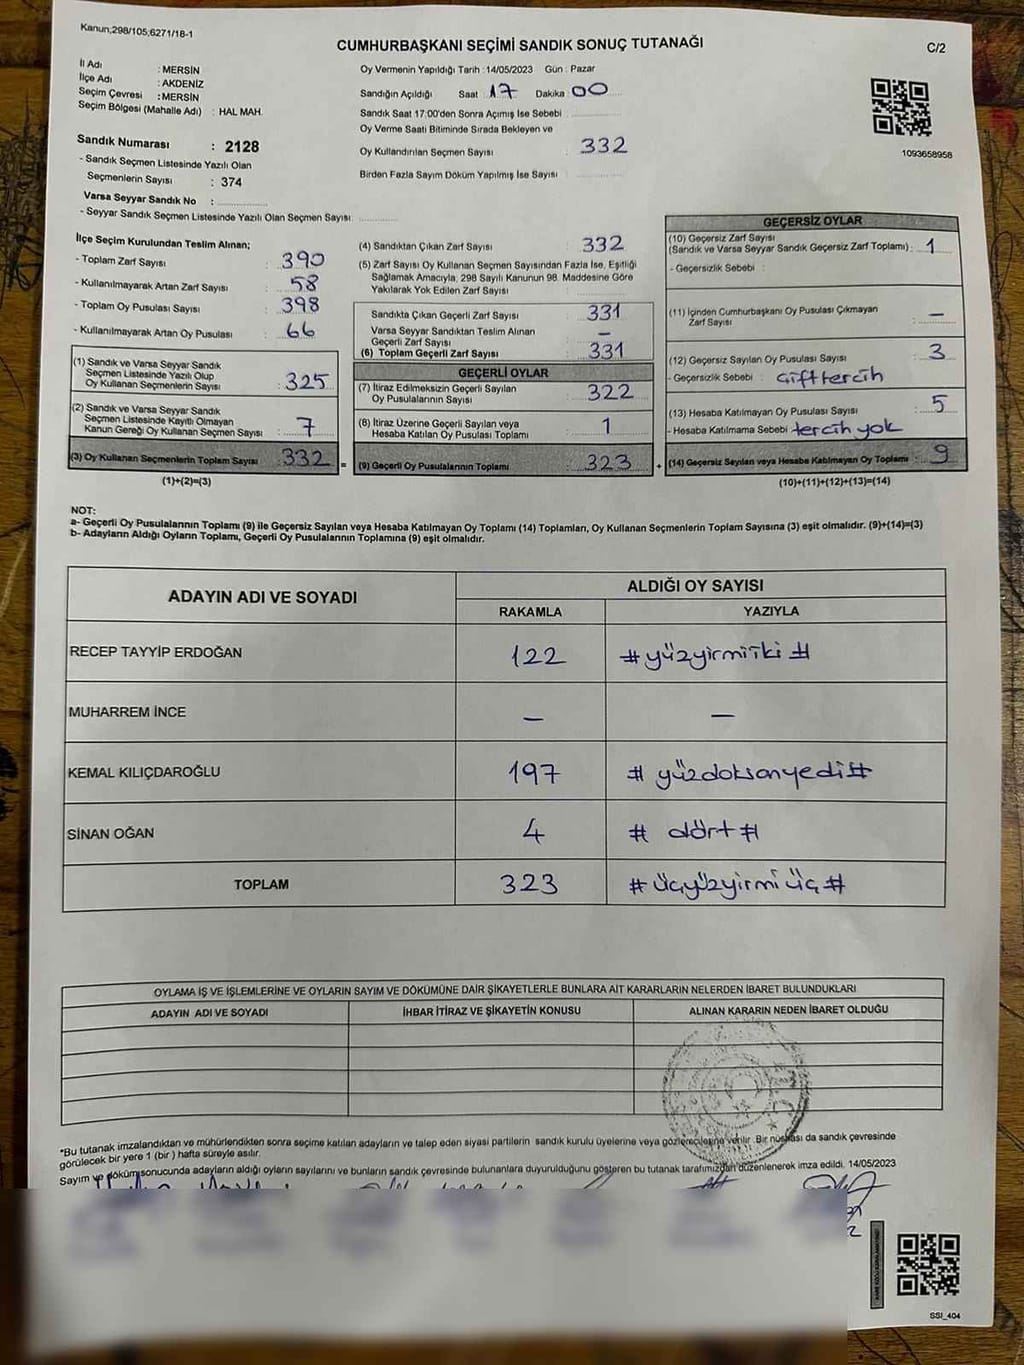 Kanun;298/105;6271/18-1
CUMHURBAŞKANI SEÇİMİ SANDIK SONUÇ TUTANAĞI
C/2
İl Adı : MERSİN
İlçe Adı : AKDENİZ
Seçim Çevresi : MERSİN
Seçim Bölgesi (Mahalle Adı) : HAL MAH.
Sandık Numarası : 2128
- Sandık Seçmen Listesinde Yazılı Olan
Seçmenlerin Sayısı : 374
Varsa Seyyar Sandık No :
- Seyyar Sandık Seçmen Listesinde Yazılı Olan Seçmen Sayısı:
Oy Vermenin Yapıldığı Tarih : 14/05/2023 Gün : Pazar
Sandığın Açıldığı Saat : 17 Dakika : 00
Sandık Saat 17:00'den Sonra Açımış İse Sebebi :
Oy Verme Saati Bitiminde Sırada Bekleyen ve
Oy Kullandırılan Seçmen Sayısı : 332
Birden Fazla Sayım Döküm Yapılmış İse Sayısı :
1093658958
İlçe Seçim Kurulundan Teslim Alınan;
- Toplam Zarf Sayısı : 390
- Kullanılmayarak Artan Zarf Sayısı : 58
- Toplam Oy Pusulası Sayısı : 398
- Kullanılmayarak Artan Oy Pusulası : 66
(1) Sandık ve Varsa Seyyar Sandık
Seçmen Listesinde Yazılı Olup
Oy Kullanan Seçmenlerin Sayısı : 325
(2) Sandık ve Varsa Seyyar Sandık
Seçmen Listesinde Kayıtlı Olmayan
Kanun Gereği Oy Kullanan Seçmen Sayısı : 7
(3) Oy Kullanan Seçmenlerin Toplam Sayısı : 332
(1)+(2)=(3)
(4) Sandıktan Çıkan Zarf Sayısı : 332
(5) Zarf Sayısı Oy Kullanan Seçmen Sayısından Fazla İse, Eşitliği
Sağlamak Amacıyla; 298 Sayılı Kanunun 98. Maddesine Göre
Yakılarak Yok Edilen Zarf Sayısı :
Sandıkta Çıkan Geçerli Zarf Sayısı : 331
Varsa Seyyar Sandıktan Teslim Alınan
Geçerli Zarf Sayısı : —
(6) Toplam Geçerli Zarf Sayısı : 331
GEÇERLİ OYLAR
(7) İtiraz Edilmeksizin Geçerli Sayılan
Oy Pusulalarının Sayısı : 322
(8) İtiraz Üzerine Geçerli Sayılan veya
Hesaba Katılan Oy Pusulası Toplamı : 1
= (9) Geçerli Oy Pusulalarının Toplamı : 323 +
GEÇERSİZ OYLAR
(10) Geçersiz Zarf Sayısı
(Sandık ve Varsa Seyyar Sandık Geçersiz Zarf Toplamı) : 1
- Geçersizlik Sebebi :
(11) İçinden Cumhurbaşkanı Oy Pusulası Çıkmayan
Zarf Sayısı : —
(12) Geçersiz Sayılan Oy Pusulası Sayısı : 3
- Geçersizlik Sebebi : Çift tercih
(13) Hesaba Katılmayan Oy Pusulası Sayısı : 5
- Hesaba Katılmama Sebebi : tercih yok
(14) Geçersiz Sayılan veya Hesaba Katılmayan Oy Toplamı : 9
(10)+(11)+(12)+(13)=(14)
NOT:
a- Geçerli Oy Pusulalarının Toplamı (9) ile Geçersiz Sayılan veya Hesaba Katılmayan Oy Toplamı (14) Toplamları, Oy Kullanan Seçmenlerin Toplam Sayısına (3) eşit olmalıdır. (9)+(14)=(3)
b- Adayların Aldığı Oyların Toplamı, Geçerli Oy Pusulalarının Toplamına (9) eşit olmalıdır.
ADAYIN ADI VE SOYADI
ALDIĞI OY SAYISI
RAKAMLA YAZIYLA
RECEP TAYYİP ERDOĞAN 122 # yüzyirmiiki #
MUHARREM İNCE — —
KEMAL KILIÇDAROĞLU 197 # yüzdoksanyedi #
SİNAN OĞAN 4 # dört #
TOPLAM 323 # üçyüzyirmi üç #
OYLAMA İŞ VE İŞLEMLERİNE VE OYLARIN SAYIM VE DÖKÜMÜNE DAİR ŞİKAYETLERLE BUNLARA AİT KARARLARIN NELERDEN İBARET BULUNDUKLARI
ADAYIN ADI VE SOYADI İHBAR İTİRAZ VE ŞİKAYETİN KONUSU ALINAN KARARIN NEDEN İBARET OLDUĞU
*Bu tutanak imzalandıktan ve mühürlendikten sonra seçime katılan adayların ve talep eden siyasi partilerin sandık kurulu üyelerine veya gözlemcilerine verilir. Bir nüshası da sandık çevresinde
görülecek bir yere 1 (bir) hafta süreyle asılır.
Sayım ve döküm sonucunda adayların aldığı oyların sayılarını ve bunların sandık çevresinde bulunanlara duyurulduğunu gösteren bu tutanak tarafımızdan düzenlenerek imza edildi. 14/05/2023
SSI_404